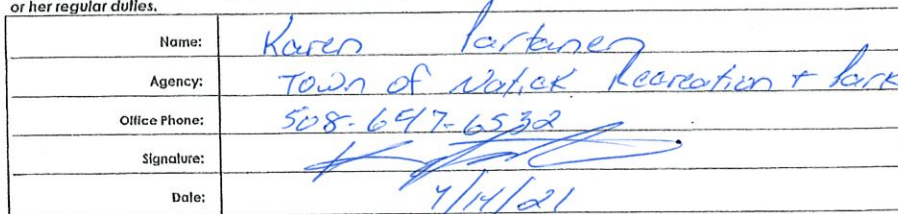 or her regular duties.
Name: Karen Partanen
Agency: Town of Natick Recreation + Park
Office Phone: 508-647-6532
Signature:
Date: 4/14/21